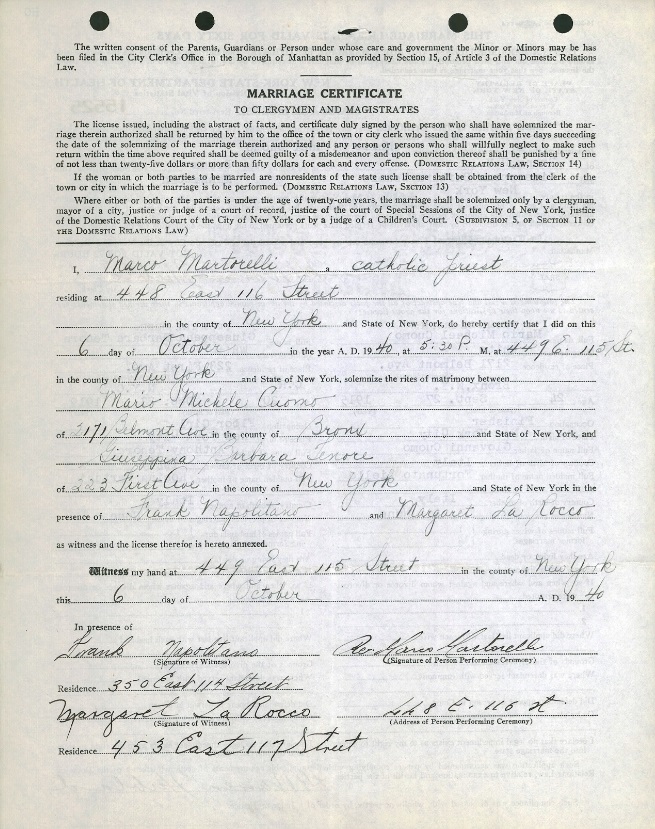 The written consent of the Parents, Guardians or Person under whose care and government the Minor or Minors may be has
been filed in the City Clerk's Office in the Borough of Manhattan as provided by Section 15, of Article 3 of the Domestic Relations
Law.
MARRIAGE CERTIFICATE
TO CLERGYMEN AND MAGISTRATES
The license issued, including the abstract of facts, and certificate duly signed by the person who shall have solemnized the mar-
riage therein authorized shall be returned by him to the office of the town or city clerk who issued the same within five days succeeding
the date of the solemnizing of the marriage therein authorized and any person or persons who shall willfully neglect to make such
return within the time above required shall be deemed guilty of a misdemeanor and upon conviction thereof shall be punished by a fine
of not less than twenty-five dollars or more than fifty dollars for each and every offense. (DOMESTIC RELATIONS LAW, SECTION 14)
If the woman or both parties to be married are nonresidents of the state such license shall be obtained from the clerk of the
town or city in which the marriage is to be performed. (DOMESTIC RELATIONS LAW, SECTION 13)
Where either or both of the parties is under the age of twenty-one years, the marriage shall be solemnized only by a clergyman,
mayor of a city, justice or judge of a court of record, justice of the court of Special Sessions of the City of New York, justice
of the Domestic Relations Court of the City of New York or by a judge of a Children's Court. (SUBDIVISION 5, OF SECTION 11 OF
THE DOMESTIC RELATIONS LAW)
I, Marco Martorelli a catholic priest
residing at 448 East 116 Street
in the county of New York and State of New York, do hereby certify that I did on this
6 day of October in the year A. D. 1940, at 5:30 P. M. at 449 E. 115 St.
in the county of New York and State of New York, solemnize the rites of matrimony between
Mario Michele Cuomo
of 2171 Belmont Ave in the county of Bronx and State of New York, and
Giuseppina Barbara Tenore
of 223 First Ave in the county of New York and State of New York in the
presence of Frank Napolitano and Margaret La Rocco
as witness and the license therefor is hereto annexed.
Witness my hand at 449 East 115 Street in the county of New York
this 6 day of October A. D. 1940
In presence of
Frank Napolitano Rev Marco Martorelli
(Signature of Witness) (Signature of Person Performing Ceremony)
Residence 350 East 114 Street
Margaret La Rocco 448 E. 116 st.
(Signature of Witness) (Address of Person Performing Ceremony)
Residence 453 East 117 Street